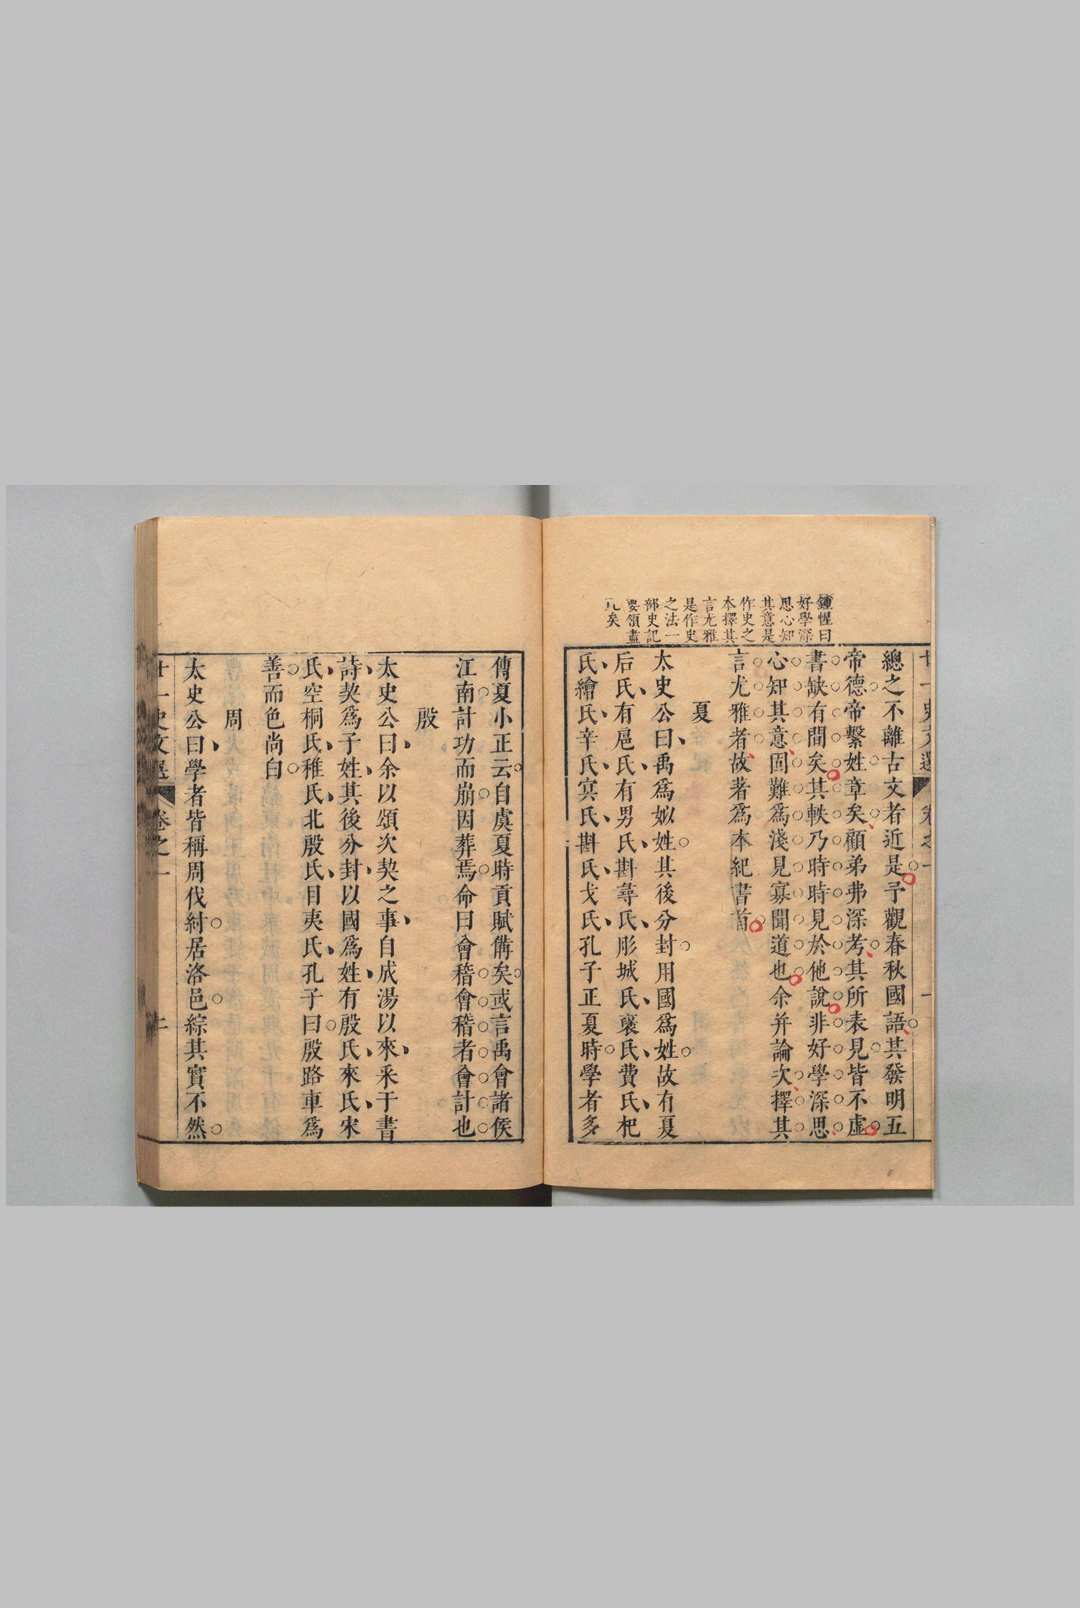 鍾惺曰
好學深
思心知
其意是
作史之
本擇其
言尤雅
是作史
之法一
部史記
要領盡
几矣
廿一史文選
卷之一
總之不離古文者近是予觀春秋國語其發明五
帝德帝繫姓章矣顧弟弗深考其所表見皆不虛
書缺有間矣其軼乃時時見於他說非好學深思
心知其意固難爲淺見寡聞道也余并論次擇其
言尤雅者故著爲本紀書首
夏
太史公曰禹爲姒姓其後分封用國爲姓故有夏
后氏有扈氏有男氏斟尋氏彤城氏襃氏費氏杞
氏繒氏辛氏冥氏斟氏戈氏孔子正夏時學者多
傳夏小正云自虞夏時貢賦備矣或言禹會諸侯
江南計功而崩因葬焉命曰會稽會稽者會計也
殷
太史公曰余以頌次契之事自成湯以來采于書
詩契爲子姓其後分封以國爲姓有殷氏來氏宋
氏空桐氏稚氏北殷氏目夷氏孔子曰殷路車爲
善而色尚白
周
太史公曰學者皆稱周伐紂居洛邑綜其實不然
廿一史文選
卷之一
二